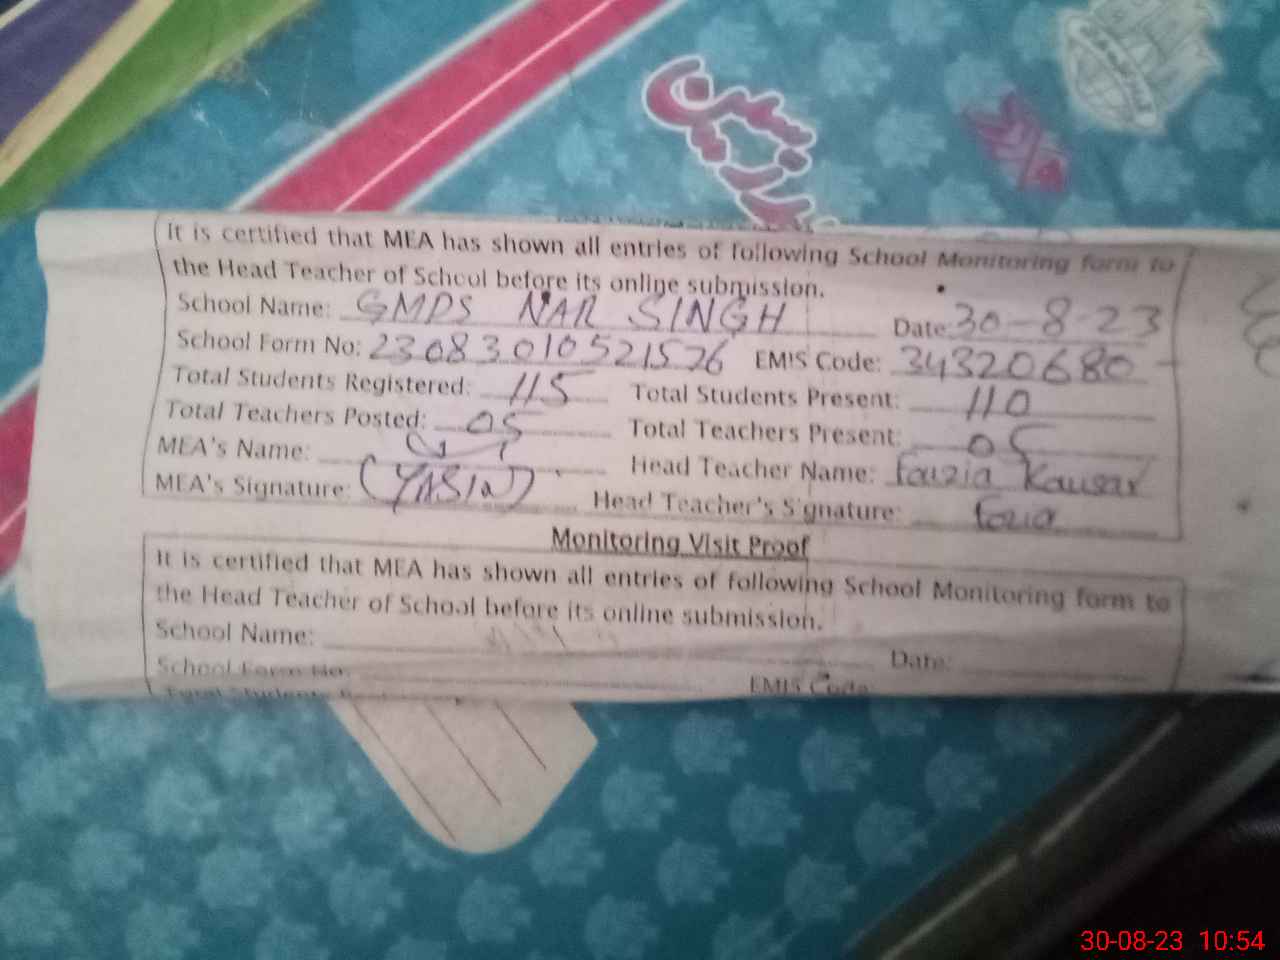 It is certified that MEA has shown all entries of following School Monitoring form to
the Head Teacher of School before its online submission.
School Name: GMPS NAR SINGH Date: 30-8-23
School Form No: 23083010521526 EMIS Code: 34320680
Total Students Registered: 115 Total Students Present: 110
Total Teachers Posted: 05 Total Teachers Present: 05
MEA's Name: Head Teacher Name: Fouzia Kausar
MEA's Signature: (YASIN) Head Teacher's Signature: Fozia
Monitoring Visit Proof
It is certified that MEA has shown all entries of following School Monitoring form to
the Head Teacher of School before its online submission.
School Name: Date:
School Form No: EMIS Code
Total Students
30-08-23 10:54